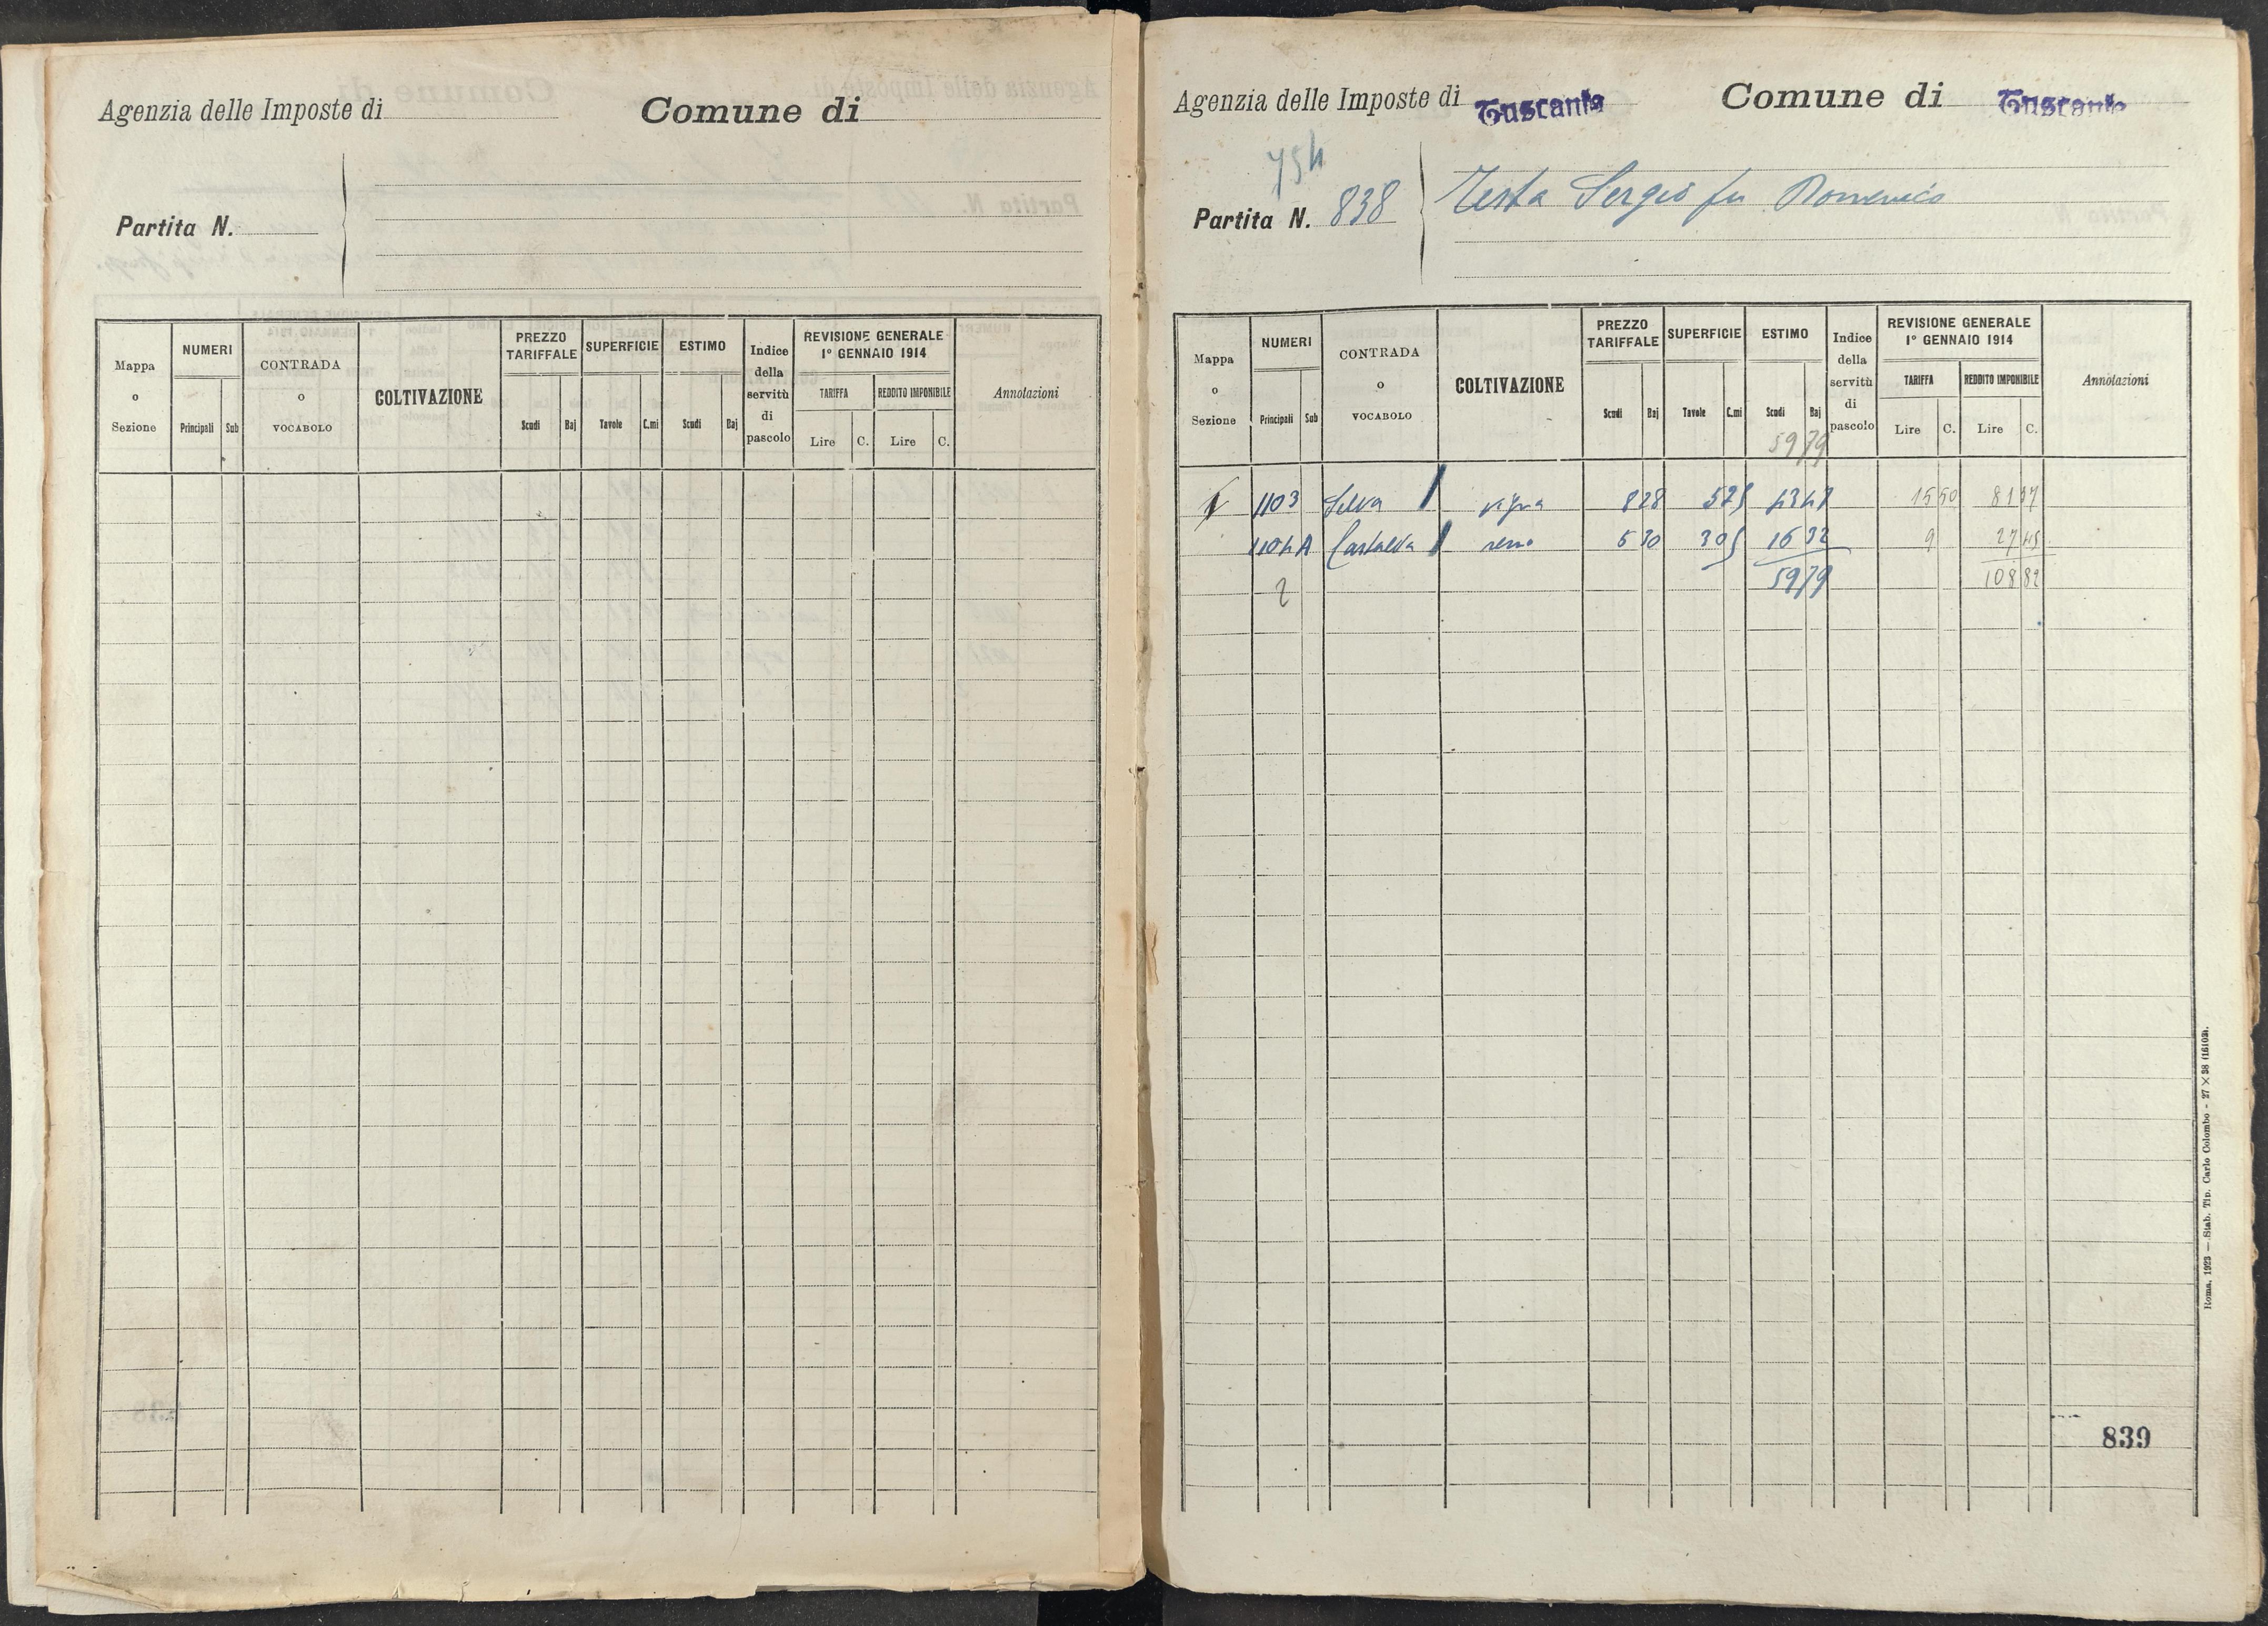 Agenzia delle Imposte di
Comune di
Partita N.
Mappa o Sezione
NUMERI
Principali
Sub
CONTRADA o VOCABOLO
COLTIVAZIONE
PREZZO TARIFFALE
Scudi
Baj
SUPERFICIE
Tavole
C.mi
ESTIMO
Scudi
Baj
Indice della servitù di pascolo
REVISIONE GENERALE
1° GENNAIO 1914
TARIFFA
Lire
C.
REDDITO IMPONIBILE
Lire
C.
Annotazioni
Agenzia delle Imposte di Tuscania
Comune di Tuscania
754
Partita N. 838
Testa Sergio fu Domenico
Mappa o Sezione
NUMERI
Principali
Sub
CONTRADA o VOCABOLO
COLTIVAZIONE
PREZZO TARIFFALE
Scudi
Baj
SUPERFICIE
Tavole
C.mi
ESTIMO
Scudi
Baj
59 79
Indice della servitù di pascolo
REVISIONE GENERALE
1° GENNAIO 1914
TARIFFA
Lire
C.
REDDITO IMPONIBILE
Lire
C.
Annotazioni
1103 Selva vigna 8 28 5 25 43 47 15 50 81 37
1104 A 5 30 3 05 16 32 9 27 45
2 59 79 108 82
839
Roma, 1923 — Stab. Tip. Carlo Colombo - 27 × 38 (16103).